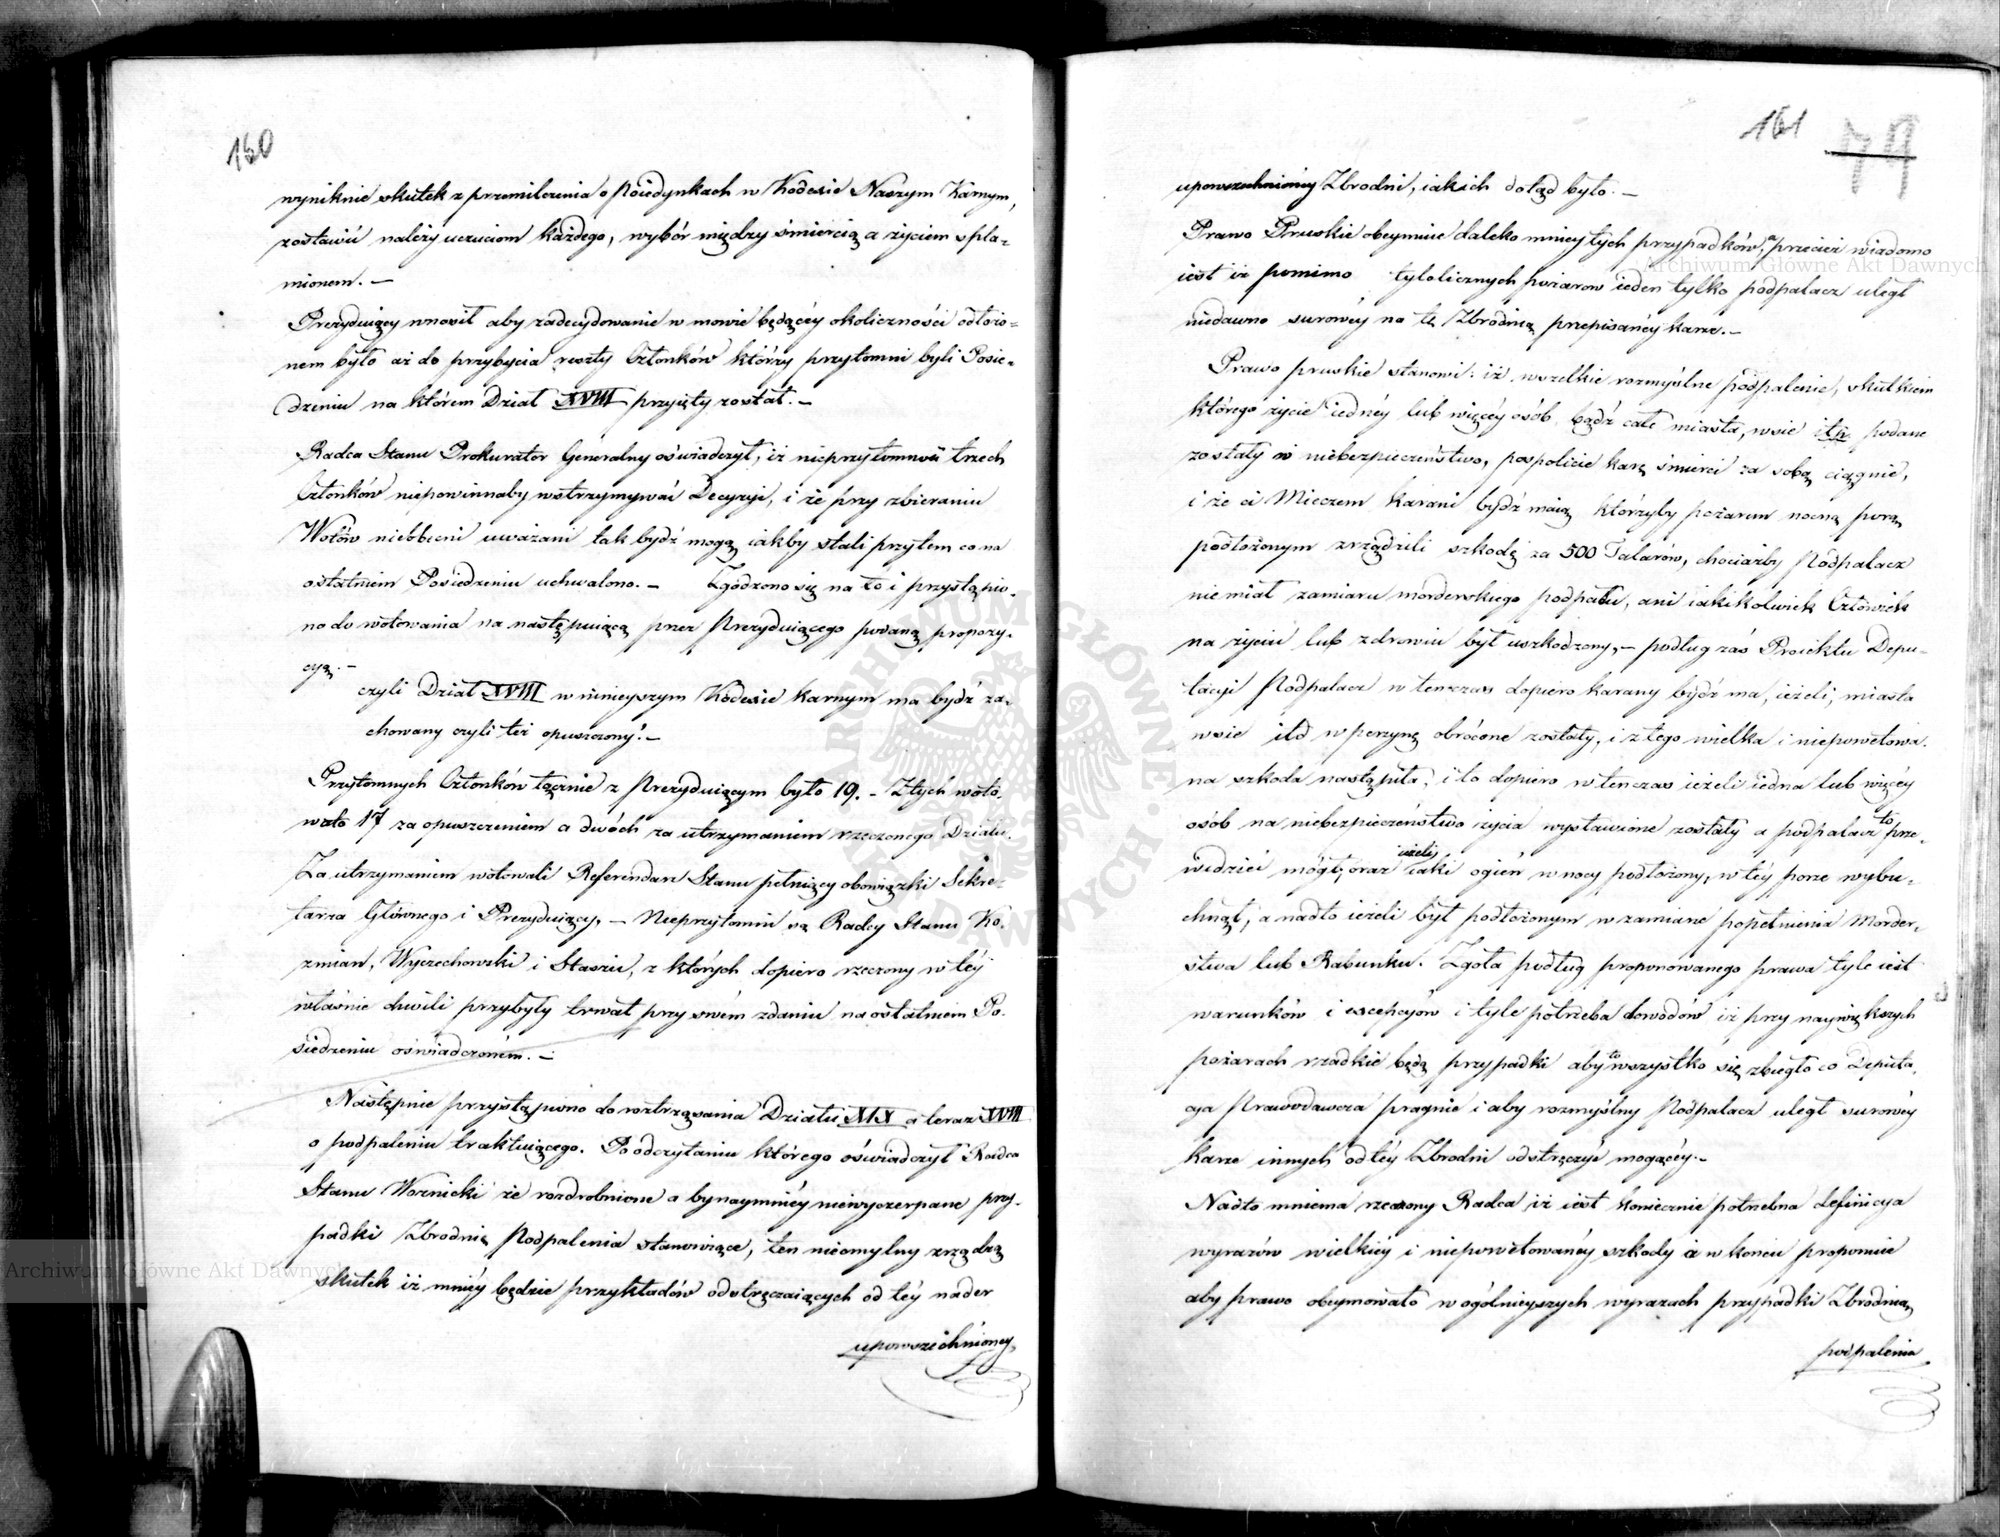 160
wyniknie skutek z przemilczenia o Poiedynkach w Kodexie Naszym Karnym,
zostawić należy uczuciom każdego, wybór między śmiercią a życiem spla-
mionem. —
Prezyduiący wnosił aby zadecydowanie w mowie będącéy okoliczności odłożo-
nem było aż do przybycia reszty Członków którzy przytomni byli Posie-
dzeniu na którem Dział XVIII przyięty został. —
Radca Stanu Prokurator Generalny oświadczył, iż nieprzytomność trzech
Członków niepowinnaby wstrzymywać Decyzyi, i że przy zbieraniu
Wotów nieobecni uważani tak bydź mogą iakby stali przytem co na
ostatniem Posiedzeniu uchwalono. — Zgodzono się na to i przystąpio-
no do wotowania na następuiącą przez Prezyduiącego podaną propozy-
cyą. —
czyli Dział XVIII w ninieyszym Kodexie karnym ma bydź za-
chowany czyli też opuszczony? —
Przytomnych Członków łącznie z Prezyduiącym było 19. — Z tych woto-
wało 17 za opuszczeniem a dwóch za utrzymaniem rzeczonego Działu.
Za utrzymaniem wotowali Referendarz Stanu pełniący obowiązki Sekre-
tarza Głównego i Prezyduiący. — Nieprzytomni są Radcy Stanu Ko-
zmian, Wyczechowski i Staszic, z których dopiero rzeczony w téy
właśnie chwili przybyły trwał przy swém zdaniu na ostatniem Po-
siedzeniu oświadczoném. —
Następnie przystąpiono do roztrząsania Działu XIX a teraz XVIII
o podpaleniu traktuiącego. Po odczytaniu którego oświadczył Radca
Stanu Woznicki że rozdrobnione a bynaymniéy niewyczerpane przy-
padki Zbrodnię Podpalenia stanowiące, ten nieomylny zrządzą
skutek iż mniéy będzie przykładów odstręczaiących od téy nader
upowszechnionéy
161
upowszechnionéy Zbrodni, iakich dotąd było. —
Prawo Pruskie obeymuie daleko mniéy tych przypadków, a przecież wiadomo
iest iż pomimo tylolicznych pożarow ieden tylko podpalacz uległ
niedawno surowéy na tę Zbrodnią przepisanéy karze. —
Prawo pruskie stanowi: iż wszelkie rozmyślne podpalenie, skutkiem
którego życie iednéy lub więcéy osób, bądź całe miasta, wsie itp. podane
zostały w niebezpieczeństwo, pospolicie karę śmierci za sobą ciągnie,
i że ci Mieczem karani bydź maią którzyby pożarem nocną porą
podłożonym zrządzili szkodę za 500 Talarów, chociażby Podpalacz
nie miał zamiaru morderskiego podpału, ani iakikolwiek Człowiek
na życiu lub zdrowiu był uszkodzony, — podług zaś Proiektu Depu-
tacyi Podpalacz w tenczas dopiero karany bydź ma, ieżeli, miasta
wsie itd w perzynę obrócone zostały, i z tego wielka i niepowetowa-
na szkoda nastąpiła, i to dopiero w tenczas ieżeli iedna lub więcéy
osób na niebezpieczeństwo życia wystawione zostały a podpalacz to prze-
widzieć mógł, oraz ieżeli iaki ogień w nocy podłożony, w téy porze wybu-
chnął, a nadto ieżeli był podłożonym w zamiarze popełnienia Morder-
stwa lub Rabunku. Zgoła podług proponowanego prawa tyle iest
warunków i excepcyów i tyle potrzeba dowodów iż przy naywiększych
pożarach rzadkie będą przypadki aby to wszystko się zbiegło co Deputa-
cya Prawodawcza pragnie i aby rozmyślny Podpalacz uległ surowéy
karze innych od téy Zbrodni odstręczyć mogącéy. —
Nadto mniema rzeczony Radca iż iest koniecznie potrzebna definicya
wyrazów wielkiéy i niepowetowanéy szkody a w końcu proponuie
aby prawo obeymowało w ogólnieyszych wyrazach przypadki Zbrodnią
podpalenia
Archiwum Główne Akt Dawnych
Archiwum Główne Akt Dawnych
ARCHIWUM GŁÓWNE AKT DAWNYCH